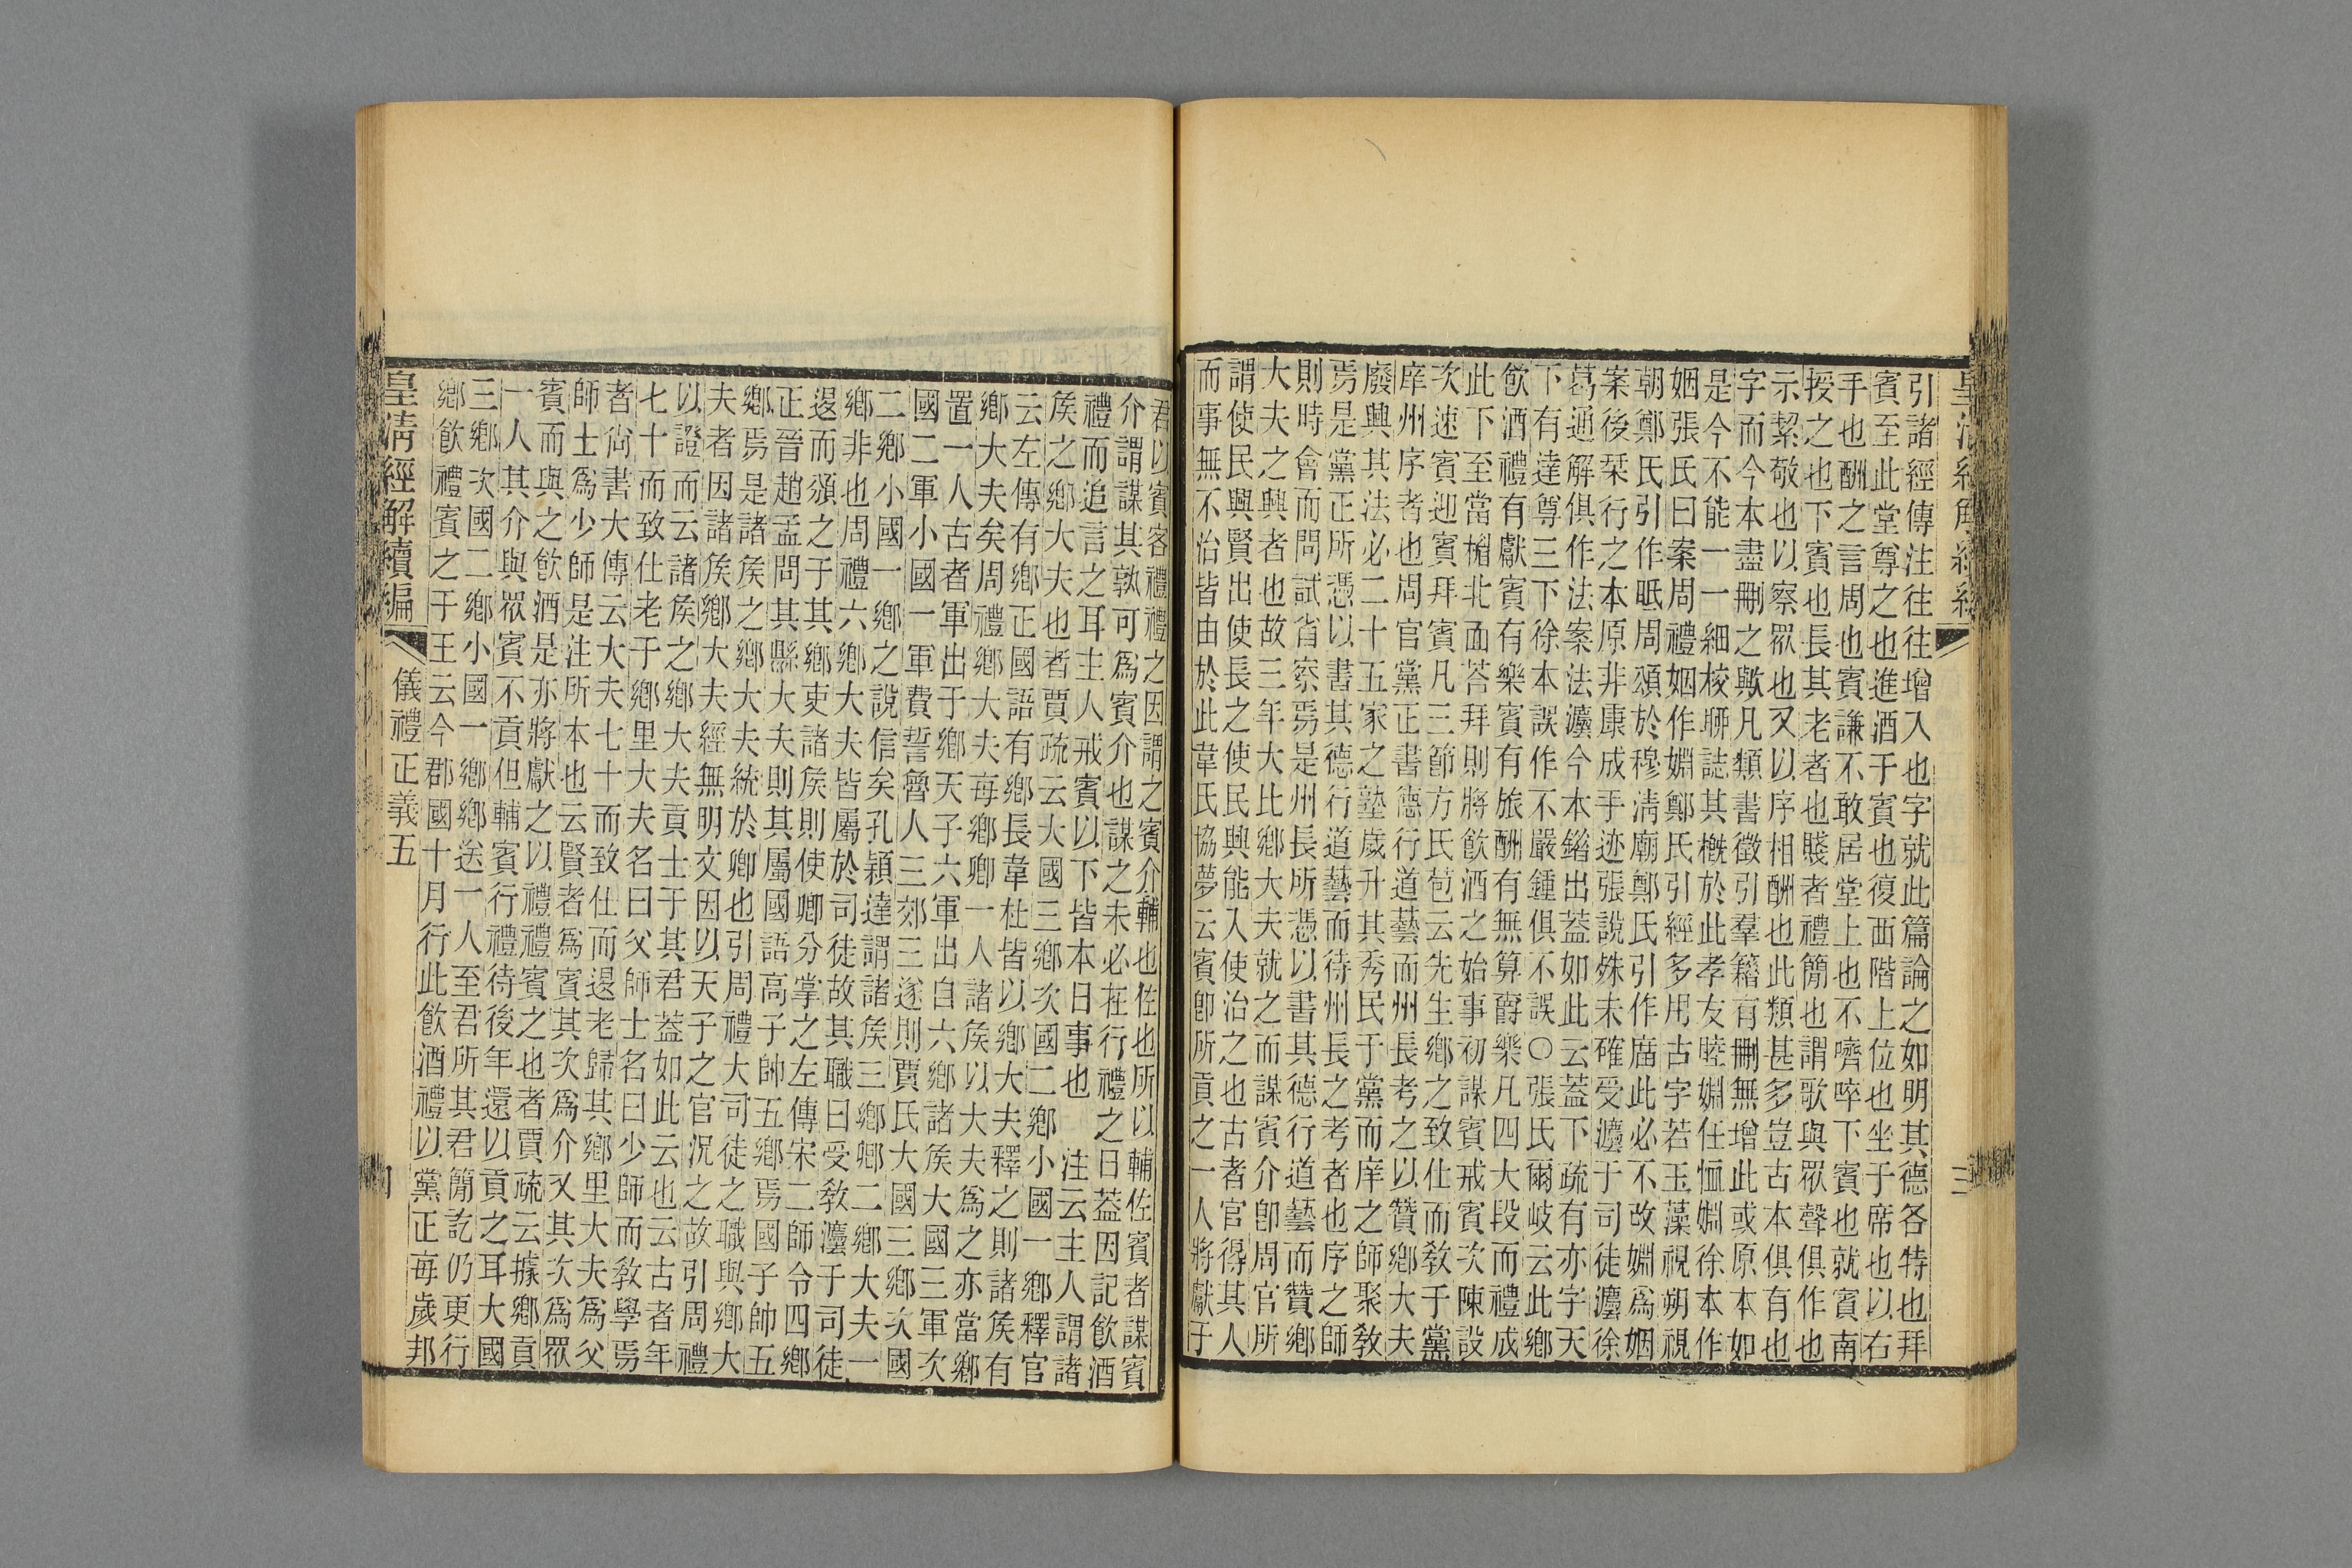 皇清經解續編
三
引諸經傳注往往增入也字就此篇論之如明其德各特也拜
賓至此堂尊之也進酒于賓也復西階上位也坐于席也以右
手也酬之言周也賓謙不敢居堂上也不嚌啐下賓也就賓南
授之也下賓也長其老者也賤者禮簡也謂歌與眾聲俱作也
示絜敬也以察眾也又以序相酬也此類甚多豈古本俱有也
字而今本盡刪之歟凡類書徵引羣籍有刪無增此或原本如
是今不能一一細校聊誌其槪於此孝友睦婣任恤婣徐本作
姻張氏曰案周禮姻作婣鄭氏引經多用古字若玉藻視朔視
朝鄭氏引作眡周頌於穆淸廟鄭氏引作庿此必不改婣爲姻
案後栞行之本原非康成手迹張說姝未確受灋于司徒灋徐
葛通解俱作法案法灋今本錯出蓋如此云蓋下疏有亦字天
下有達尊三下徐本誤作不嚴鍾俱不誤〇張氏爾岐云此鄉
飮酒禮有獻賓有樂賓有旅酬有無算爵樂凡四大段而禮成
此下至當楣北面荅拜則將飮酒之始事初謀賓戒賓次陳設
次速賓迎賓拜賓凡三節方氏苞云先生鄉之致仕而敎于黨
庠州序者也周官黨正書德行道藝而州長考之以贊鄉大夫
廢興其法必二十五家之塾歲升其秀民于黨而庠之師聚敎
焉是黨正所憑以書其德行道藝而待州長之考者也序之師
則時會而問試省察焉是州長所憑以書其德行道藝而贊鄉
大夫之興者也故三年大比鄉大夫就之而謀賓介卽周官所
謂使民興賢出使長之使民興能入使治之也古者官得其人
而事無不治皆由於此韋氏協夢云賓卽所貢之一人將獻于
君以賓客禮禮之因謂之賓介輔也佐也所以輔佐賓者謀賓
介謂謀其孰可爲賓介也謀之未必在行禮之日蓋因記飮酒
禮而追言之耳主人戒賓以下皆本日事也　注云主人謂諸
矦之鄉大夫也者賈疏云大國三鄉次國二鄉小國一鄉釋官
云左傳有鄉正國語有鄉長韋杜皆以鄉大夫釋之則諸矦有
鄉大夫矣周禮鄉大夫每鄉卿一人諸矦以大夫爲之亦當鄉
置一人古者軍出于鄉天子六軍出自六鄉諸矦大國三軍次
國二軍小國一軍費誓魯人三郊三遂則賈氏大國三鄉次國
二鄉小國一鄉之說信矣孔穎達謂諸矦三鄉卿二鄉大夫一
鄉非也周禮六鄉大夫皆屬於司徒故其職曰受敎灋于司徒
退而頒之于其鄉吏諸矦則使卿分掌之左傳宋二師令四鄉
正晉趙孟問其縣大夫則其屬國語高子帥五鄉焉國子帥五
鄉焉是諸矦之鄉大夫統於卿也引周禮大司徒之職與鄉大
夫者因諸矦鄉大夫經無明文因以天子之官況之故引周禮
以證而云諸矦之鄉大夫貢士于其君蓋如此云也云古者年
七十而致仕老于鄉里大夫名曰父師士名曰少師而敎學焉
者尙書大傳云大夫七十而致仕而退老歸其鄉里大夫爲父
師士爲少師是注所本也云賢者爲賓其次爲介又其次爲眾
賓而與之飮酒是亦將獻之以禮禮賓之也者賈疏云據鄉貢
一人其介與眾賓不貢但輔賓行禮待後年還以貢之耳大國
三鄉次國二鄉小國一鄉鄉送一人至君所其君簡訖仍更行
鄉飮禮賓之于王云今郡國十月行此飮酒禮以黨正每歲邦
皇淸經解續編　儀禮正義五　四